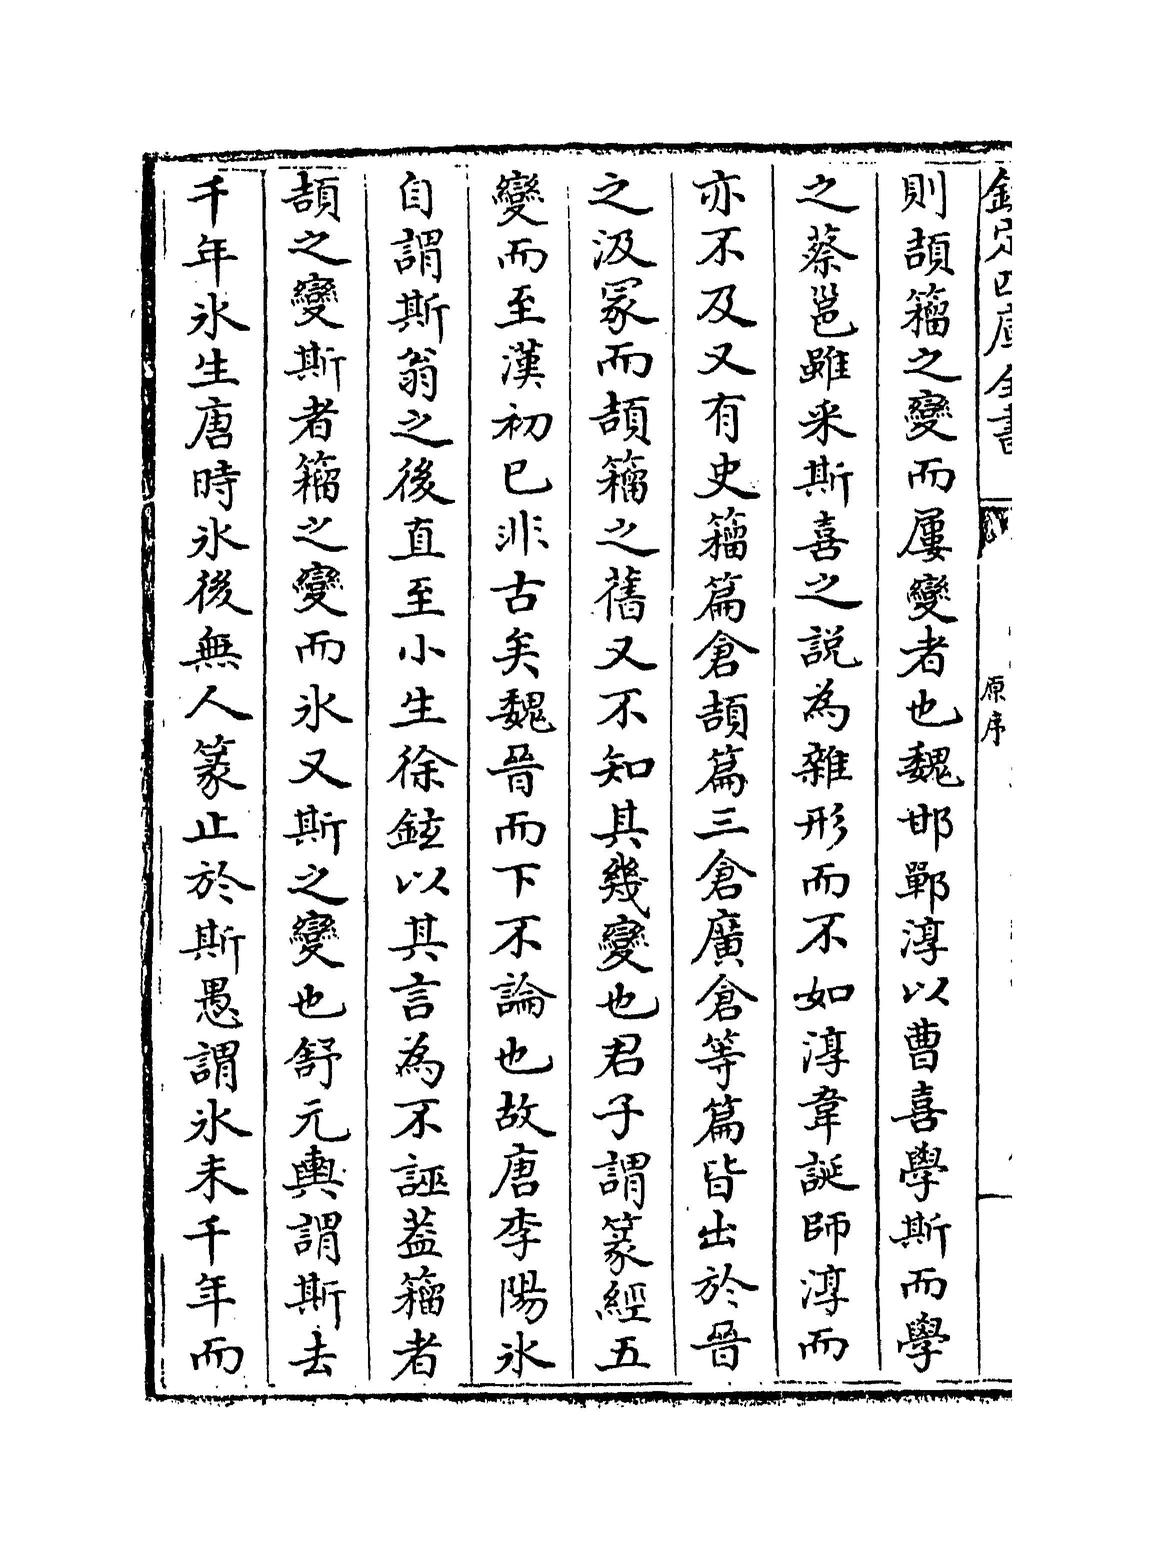 欽定四庫全書
原序
則頡籀之變而屢變者也魏邯鄲淳以曹喜學斯而學
之蔡邕雖采斯喜之說為雜形而不如淳韋誕師淳而
亦不及又有史籀篇倉頡篇三倉廣倉等篇皆出於晉
之汲冢而頡籀之舊又不知其幾變也君子謂篆經五
變而至漢初已非古矣魏晉而下不論也故唐李陽氷
自謂斯翁之後直至小生徐鉉以其言為不誣葢籀者
頡之變斯者籀之變而氷又斯之變也舒元輿謂斯去
千年氷生唐時氷後無人篆止於斯愚謂氷未千年而